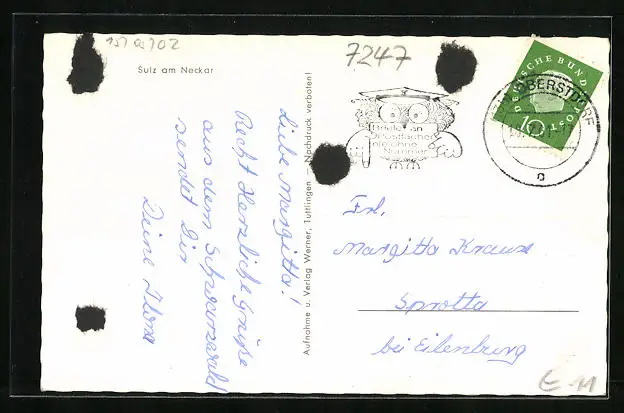 157 a 702
7247
Sulz am Neckar
DEUTSCHE BUNDESPOST
10
OBERSTDORF
Briefe an
Postfächer
nie ohne
Nummer
Liebe Margitta!
Recht Herzliche Grüße
aus dem Schwarzwald
sendet Dir
Deine
Aufnahme u. Verlag Werner, Tuttlingen — Nachdruck verboten!
Frl.
Margitta Krause
Sprotta
bei Eilenburg
E-11